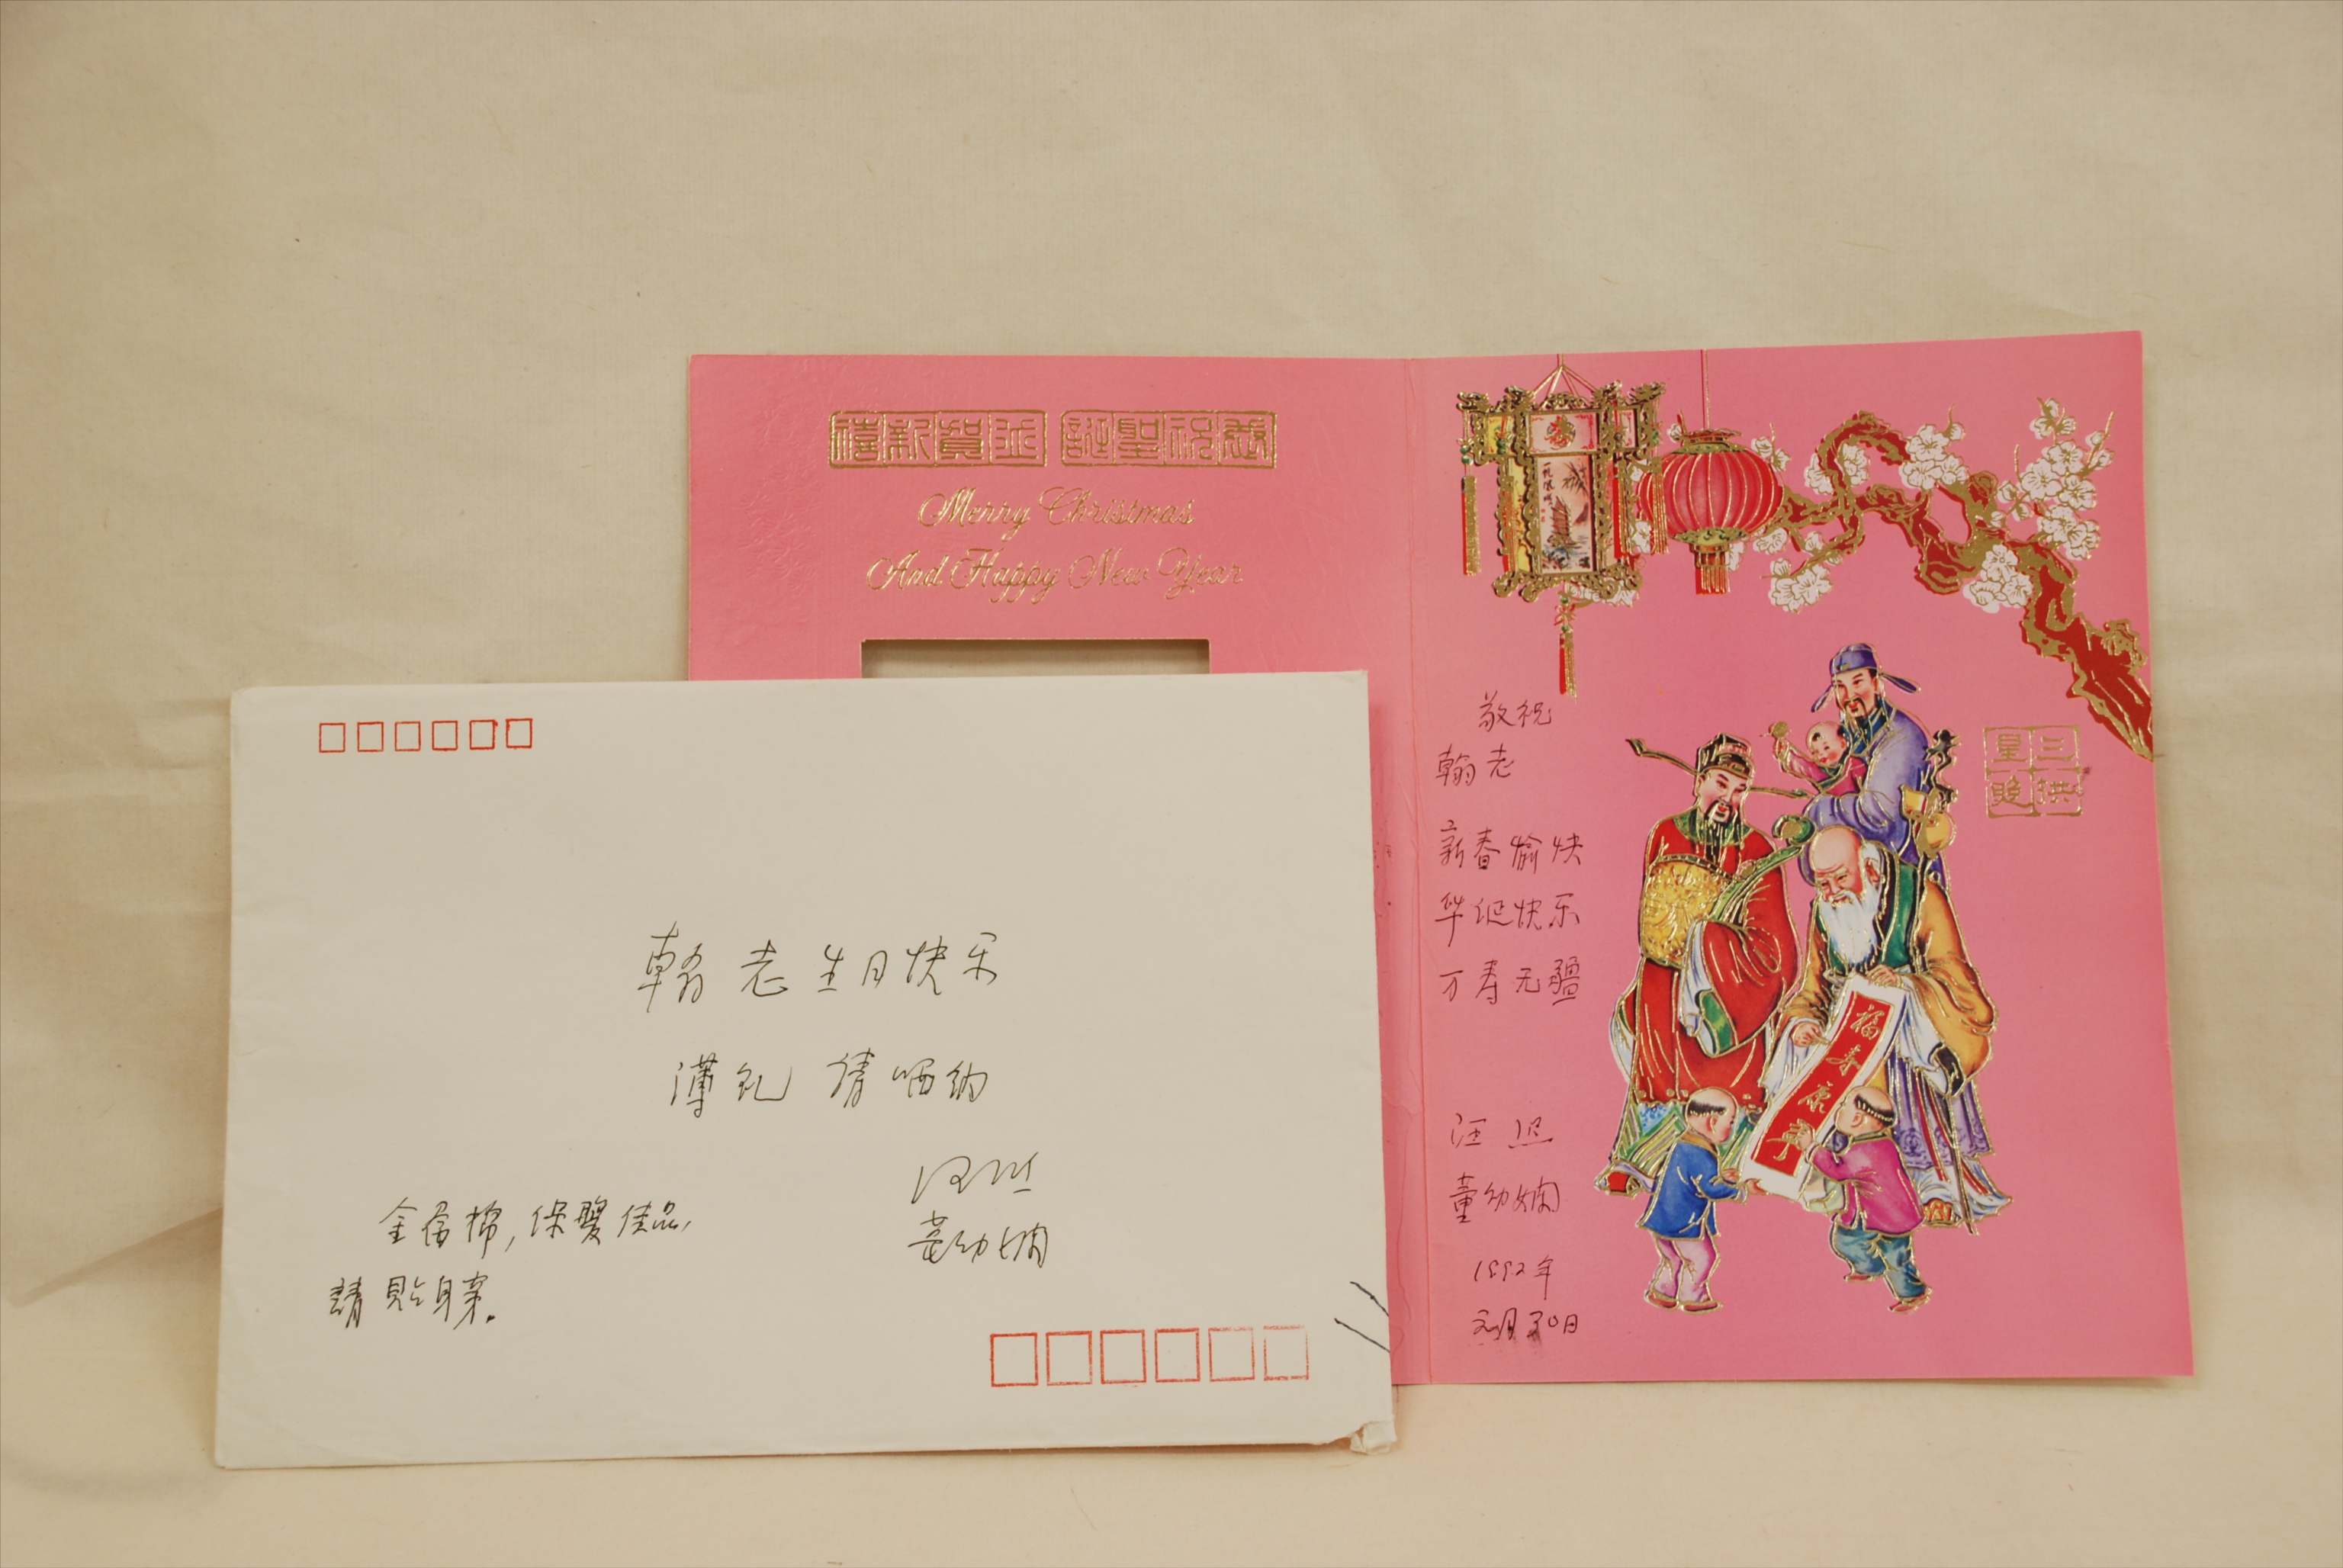 恭祝聖誕 並賀新禧
Merry Christmas
And Happy New Year
三星拱照
福寿康宁
敬祝
翰老
新春愉快
华诞快乐
万寿无疆
汪
董幼娴
1992年
元月30日
翰老生日快乐
薄礼 请哂纳
董幼娴
保暖佳品,
請貼身穿。